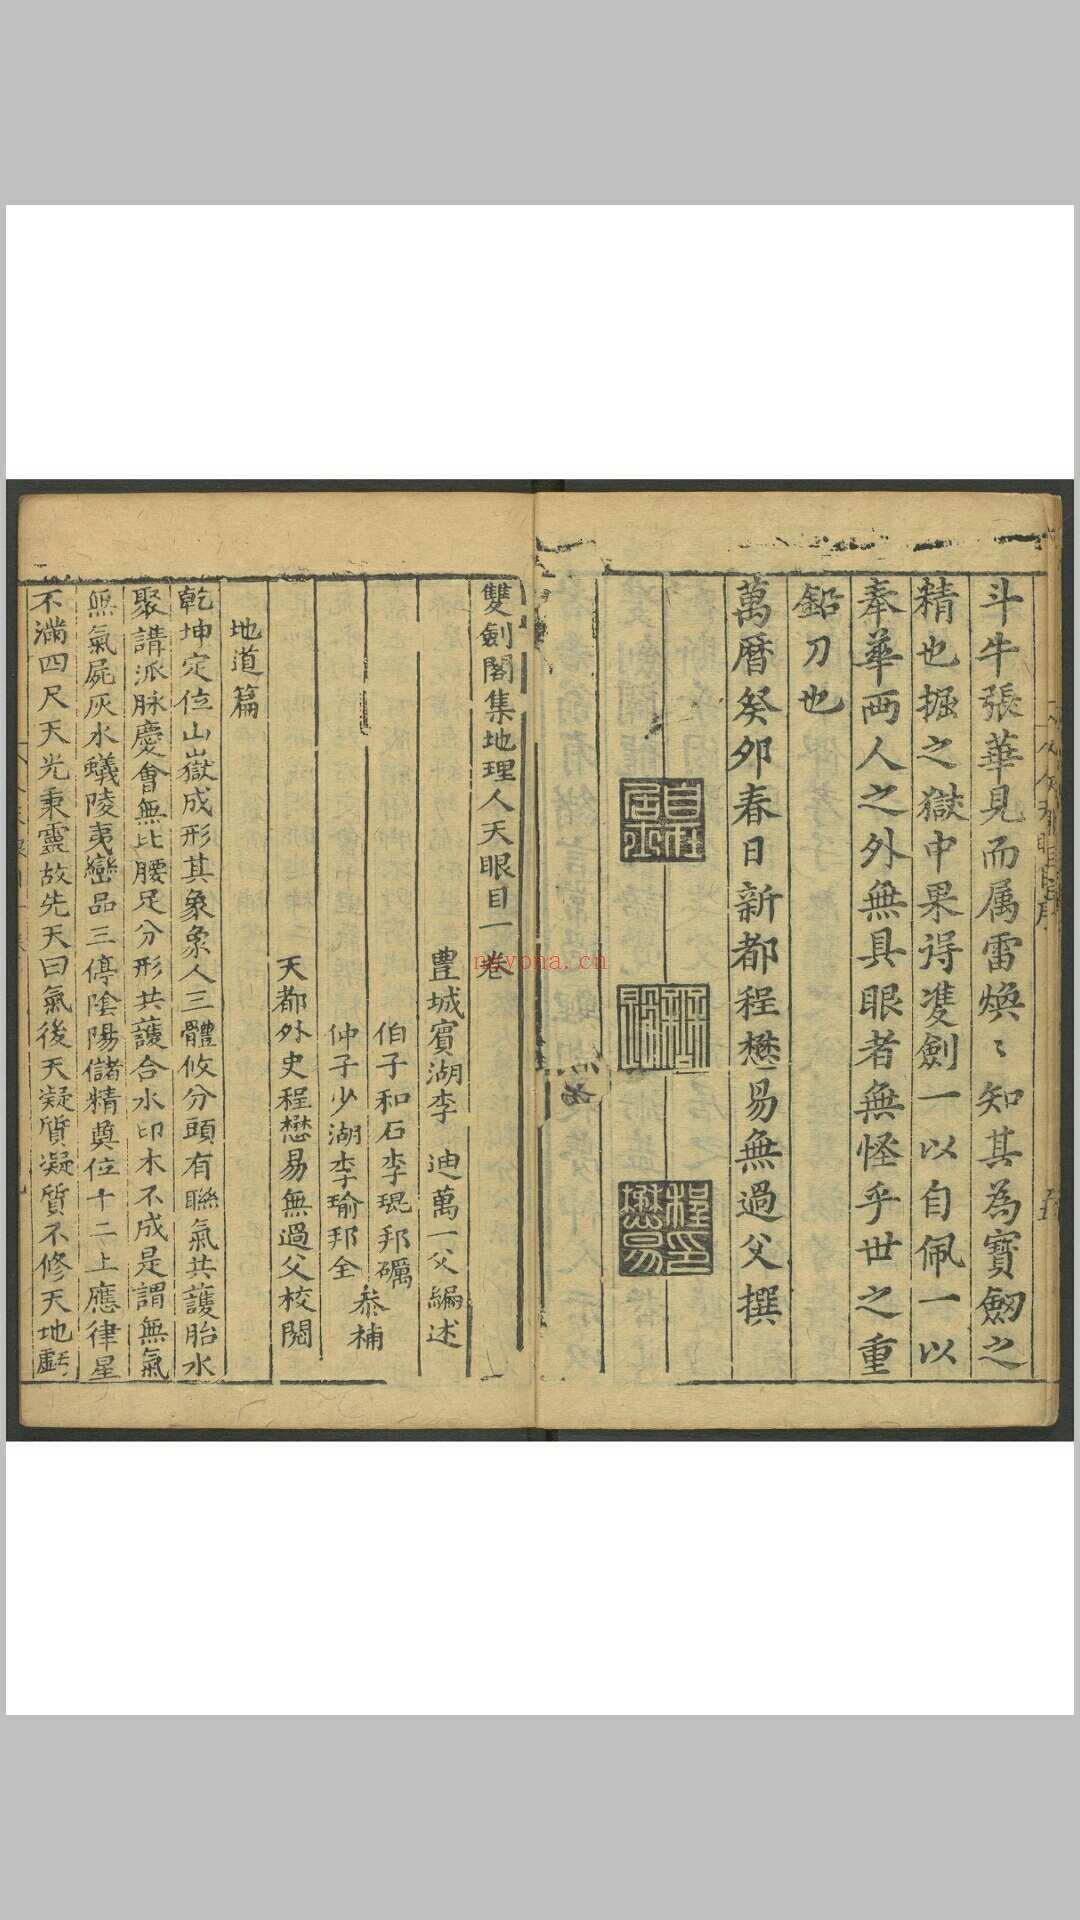 斗牛張華見而属雷煥〻知其為寳劔之
精也掘之獄中果得䨇劍一以自佩一以
奉華両人之外無具眼者無怪乎世之重
鉛刀也
萬曆癸卯春日新都程懋易無過父撰
程印懋易
雙劍閣集地理人天眼目一卷
豊城賓湖李迪萬一父編述
伯子和石李琨邦礪
仲子少湖李瑜邦全
叅補
天都外史程懋易無過父校閱
地道篇
乾坤定位山嶽成形其象象人三體攸分頭有聯氣共護胎水
聚講派脉慶會無比腰足分形共護合水印木不成是謂無氣
無氣屍灰水蟻陵夷巒品三停陰陽儲精奠位十二上應律星
不滿四尺天光秉靈故先天曰氣後天凝質凝質不修天地虧
nayona.cn